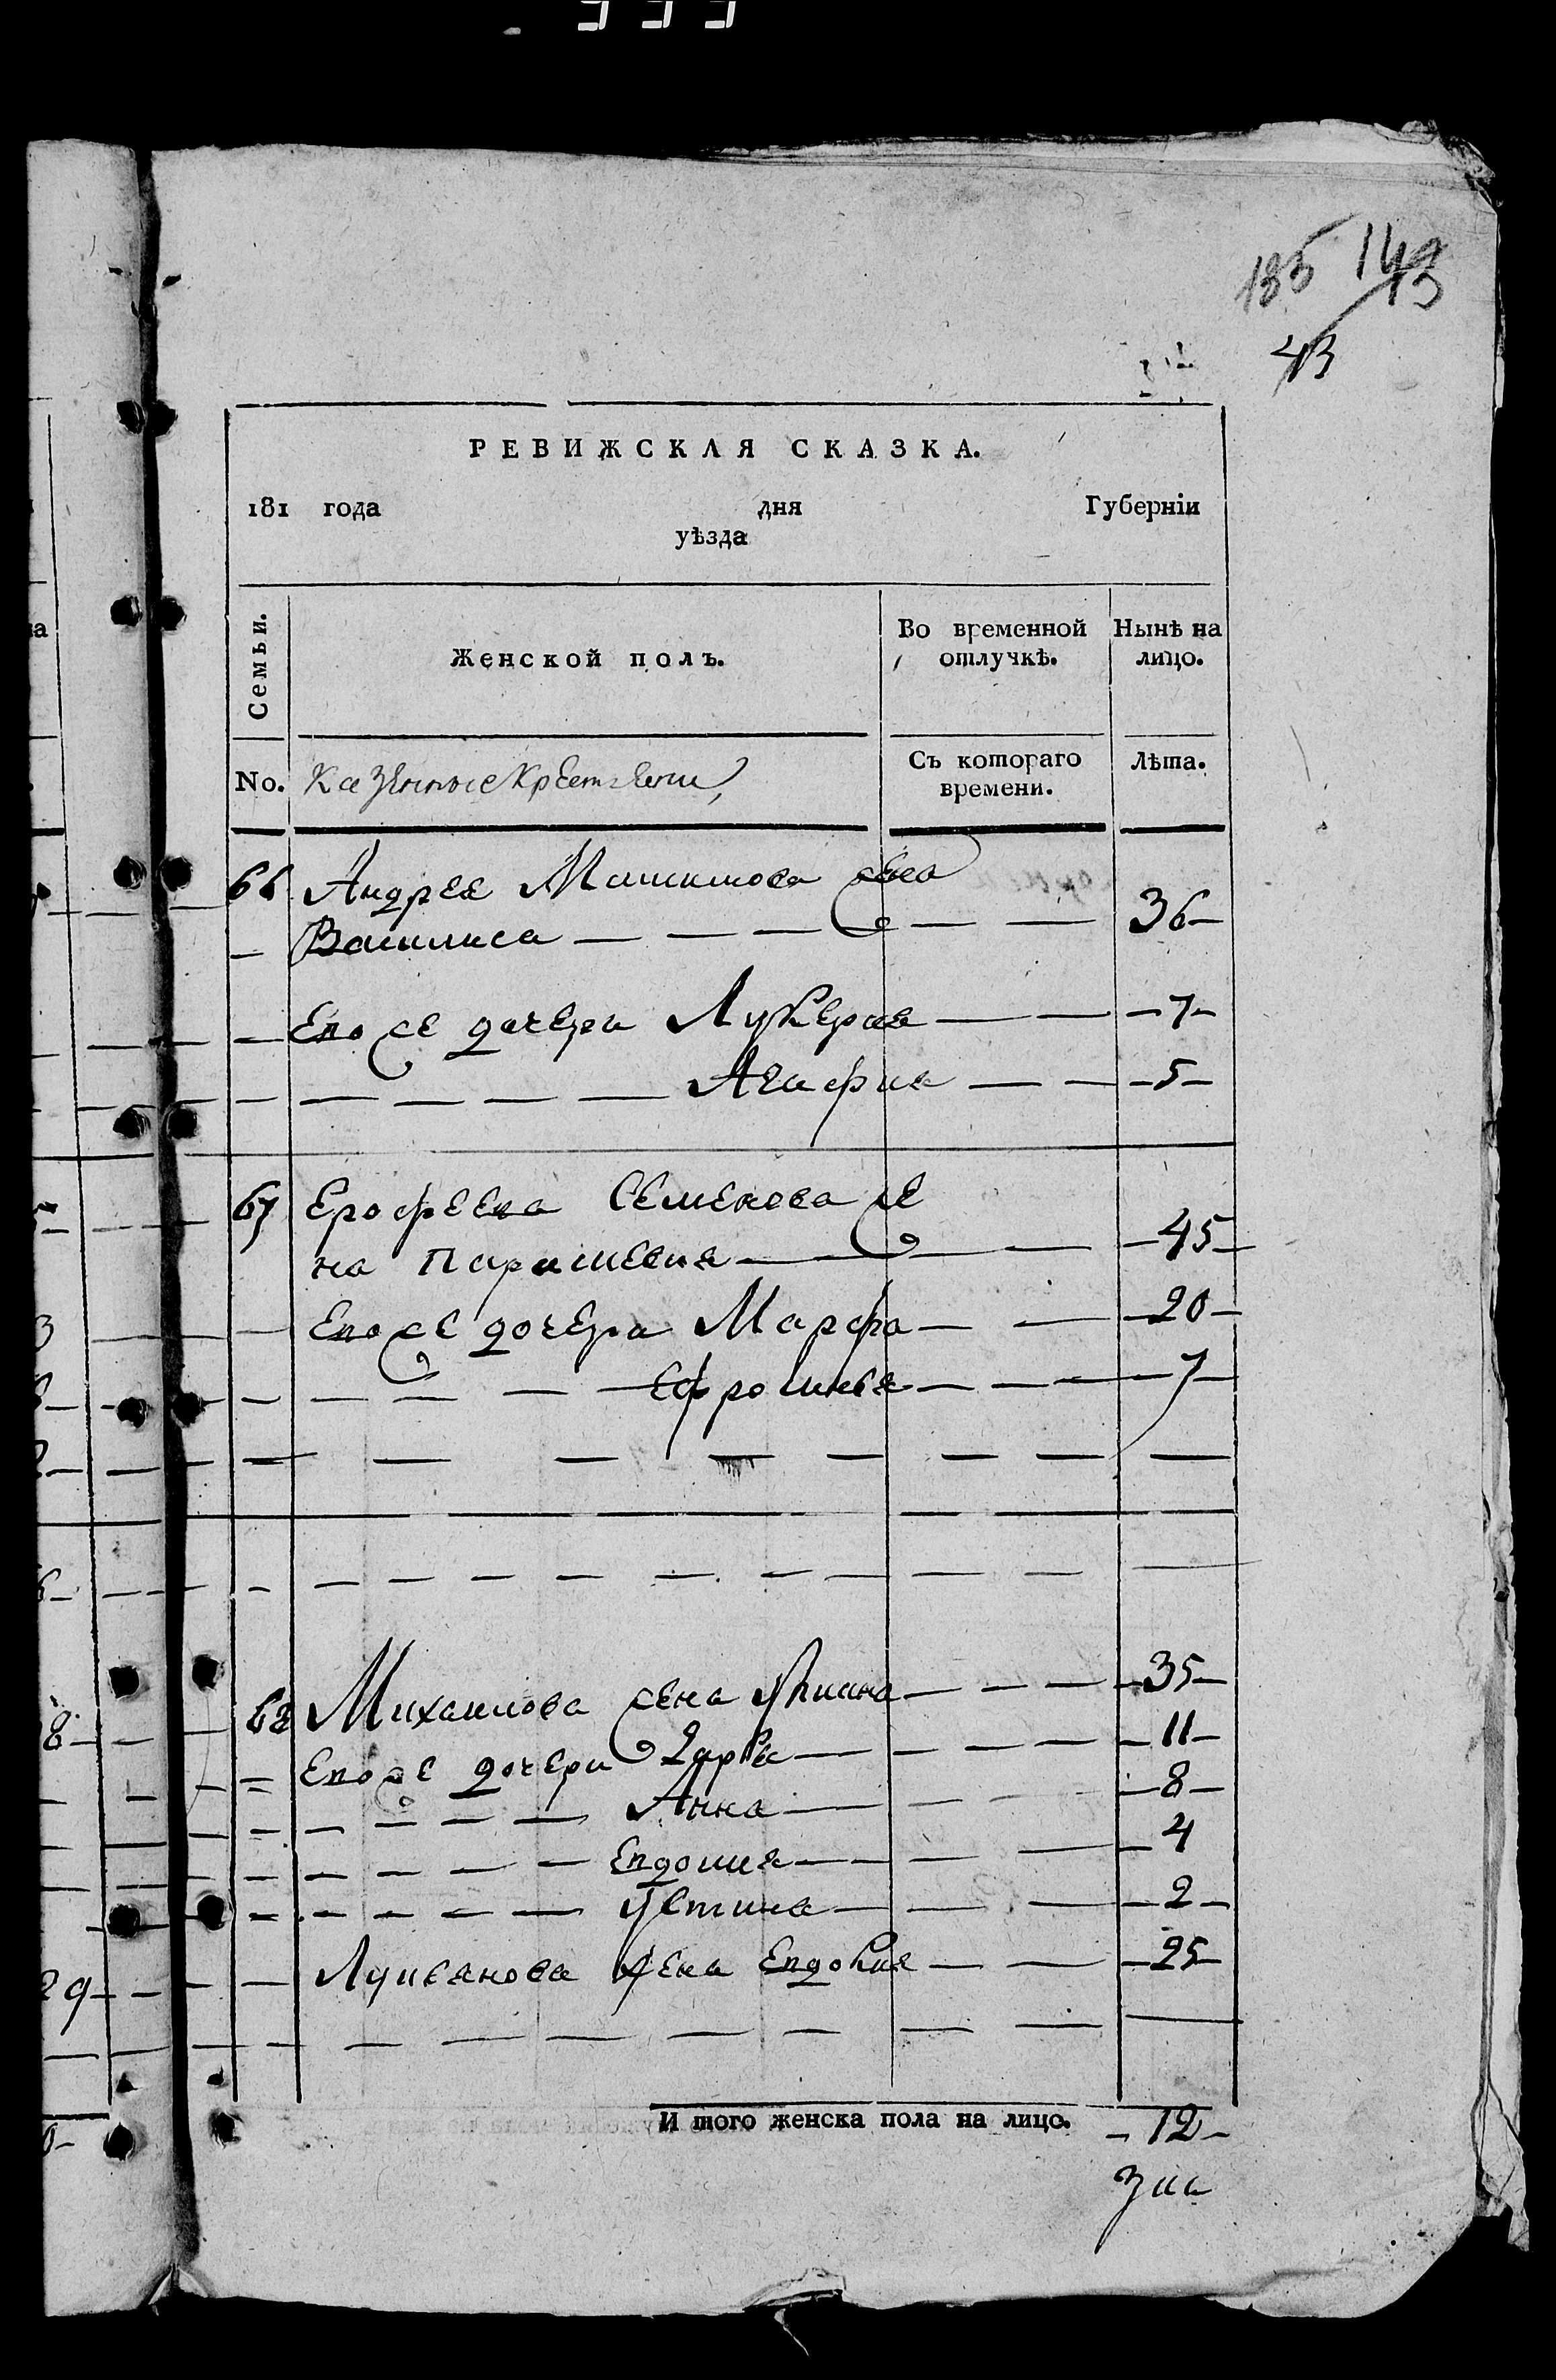 185 143
43
РЕВИЖСКАЯ СКАЗКА.
181 года дня Губерніи
уѣзда
Семьи.
Женской полъ.
Во временной отлучкѣ.
Нынѣ на лицо.
No.
Казенные крестяни
Съ котораго времени.
Лѣта.
66 Андрея жена
Василиса 36
Ево же дочери Лукерия 7
Агафия 5
67 Ерофеева Семенова же
на Парасковия 45
Ево же дочери Марфа 20
Ефросиния 7
68 Михаилова жена 35
Ево же дочери Дарья 11
Анна 8
4
Устина 2
жена Евдокия 25
И того женска пола на лицо. 12